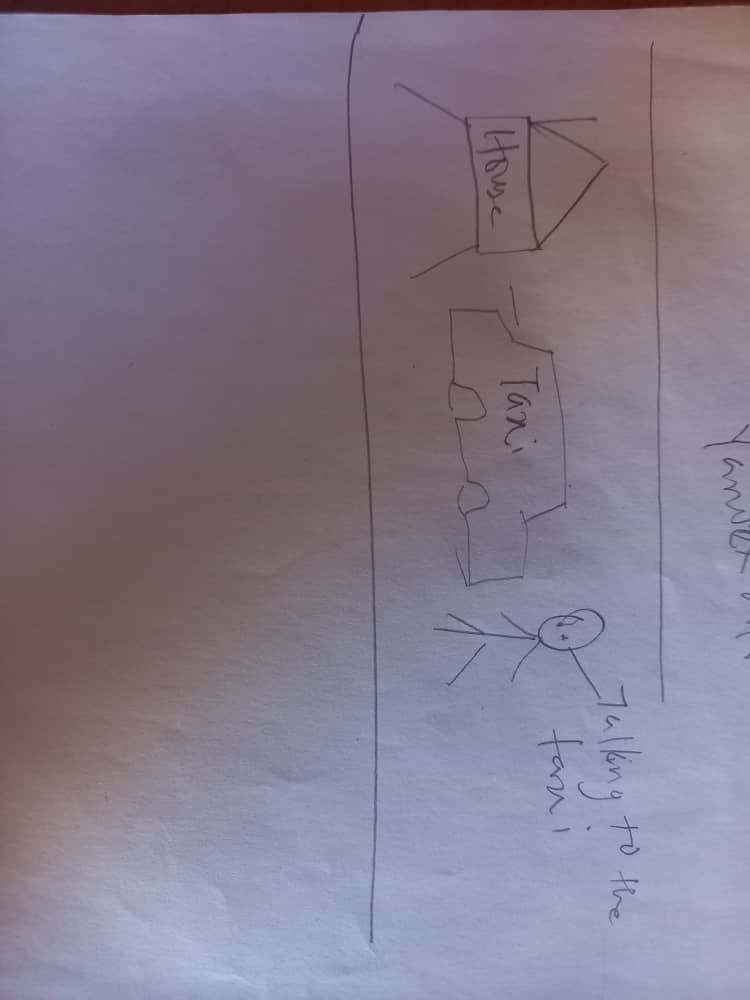 House
Taxi
Talking to the
taxi